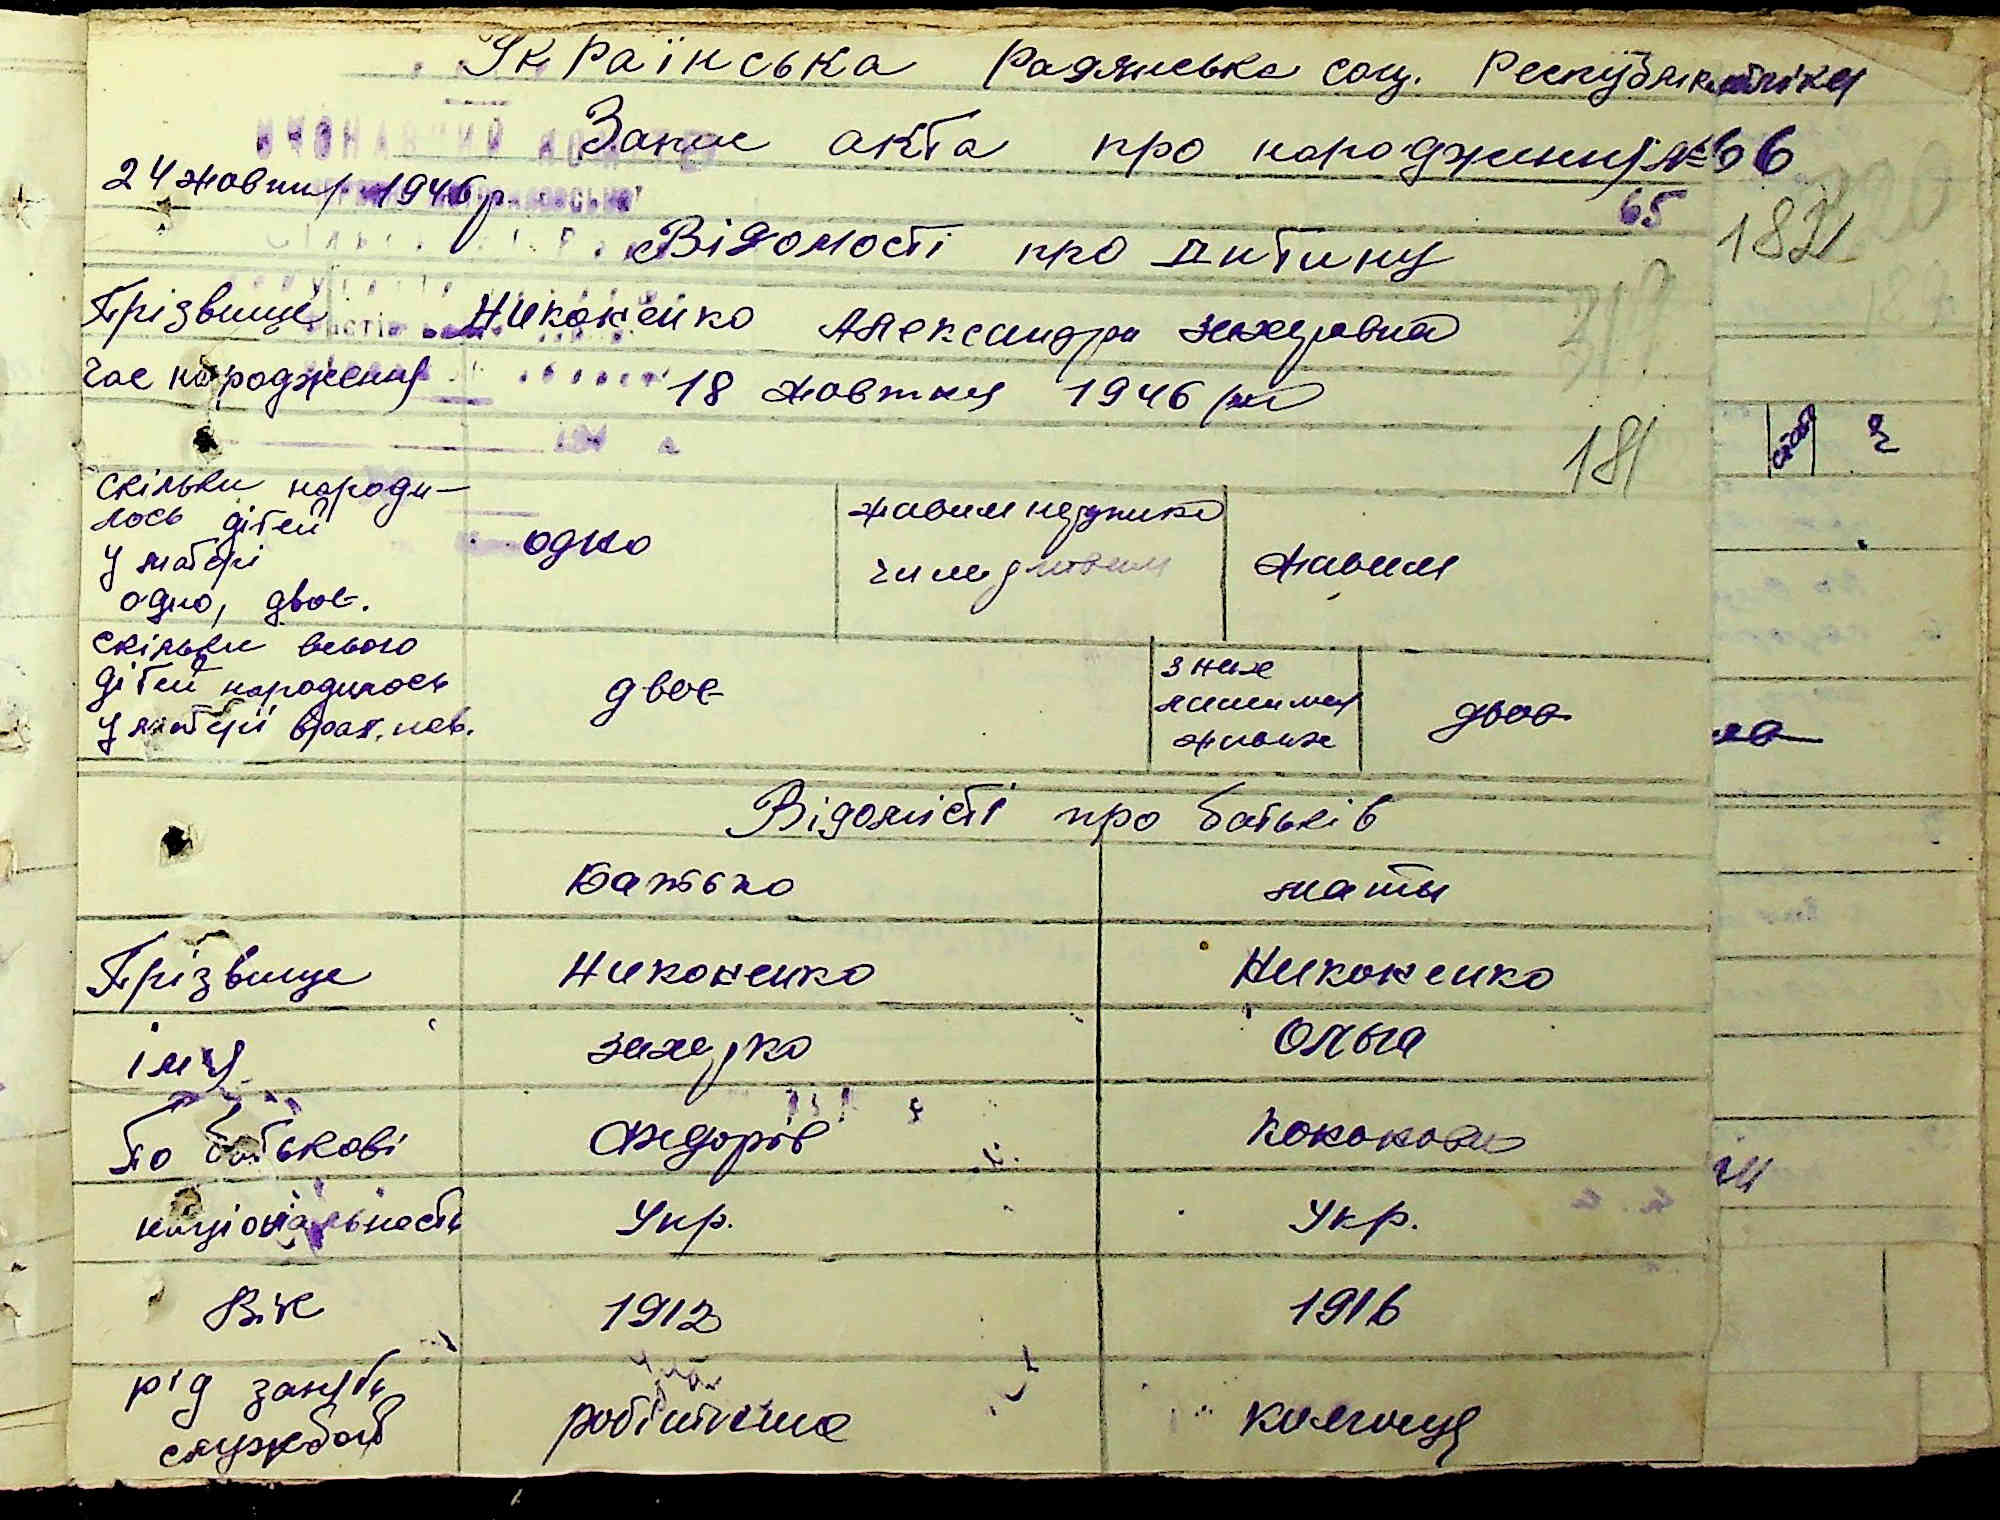 Українська Радянська соц. Республіка
Запис акта про народження №66
24 жовтня 1946 р.
65
182
Відомості про дитину
Прізвище Никоненко Александра
час народження 18 жовтня 1946
181
скільки народи-
лось дітей
у матері
одно, двоє.
одно
живим
скільки всього
дітей народилось
у матері врах. нов.
двоє
з них
лишилися
живих
двоє
Відомісті про батьків
Батько мати
Прізвище Никоненко Никоненко
ім'я Захарко Ольга
По батькові Федорів
національность Укр. Укр.
Вік 1912 1916
рід занять
службові
колгосця